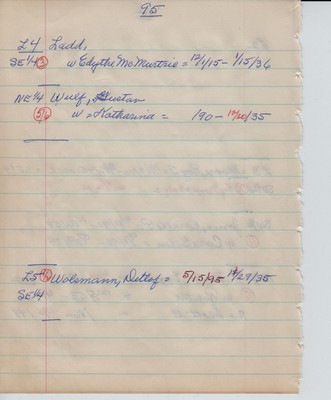 95
L4 Ladd,
SE 1/4 3 w Edythe McMurtrie = 12/1/15 - 1/15/36
NE 1/4 Wulf, Gustav
5/6 w = Katharina = /90 - 12/20/35
L5 Wolsmann, Detlof = 5/15/95 12/29/35
SE 1/4